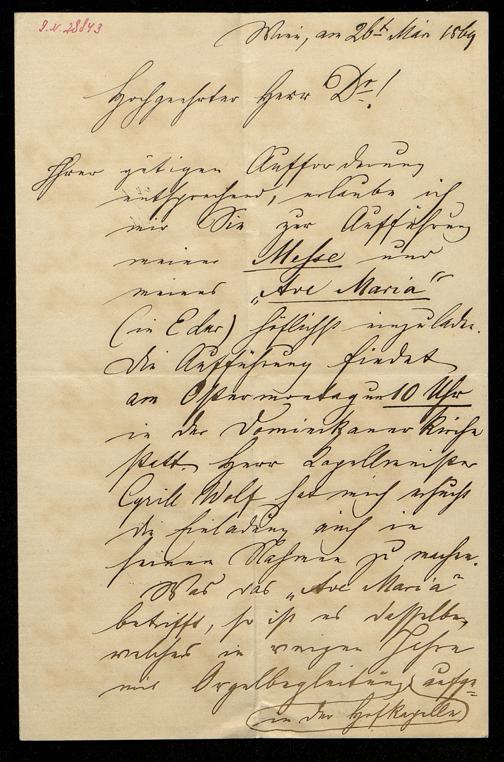 I.N. 28843
Wien, am 26t Mär 1869
Hochgeehrter Herr Dr!
Ihrer gütigen Aufforderung
entsprechend, erlaube ich
mir Sie zur Aufführung
meiner Messe und
meines „Ave Maria“
(in E dur) höflichst einzuladen.
Die Aufführung findet
am Ostermontag um 10 Uhr
in der Dominikaner Kirche
statt. Herr Kapellmeister
Cyrill Wolf hat mich ersucht
die Einladung auch in
seinem Nahmen zu machen.
Was das „Ave Maria“
betrifft, so ist es dasselbe,
welches in vorigen Jahre
mit Orgelbegleitung aufge-
in der Hofkapelle